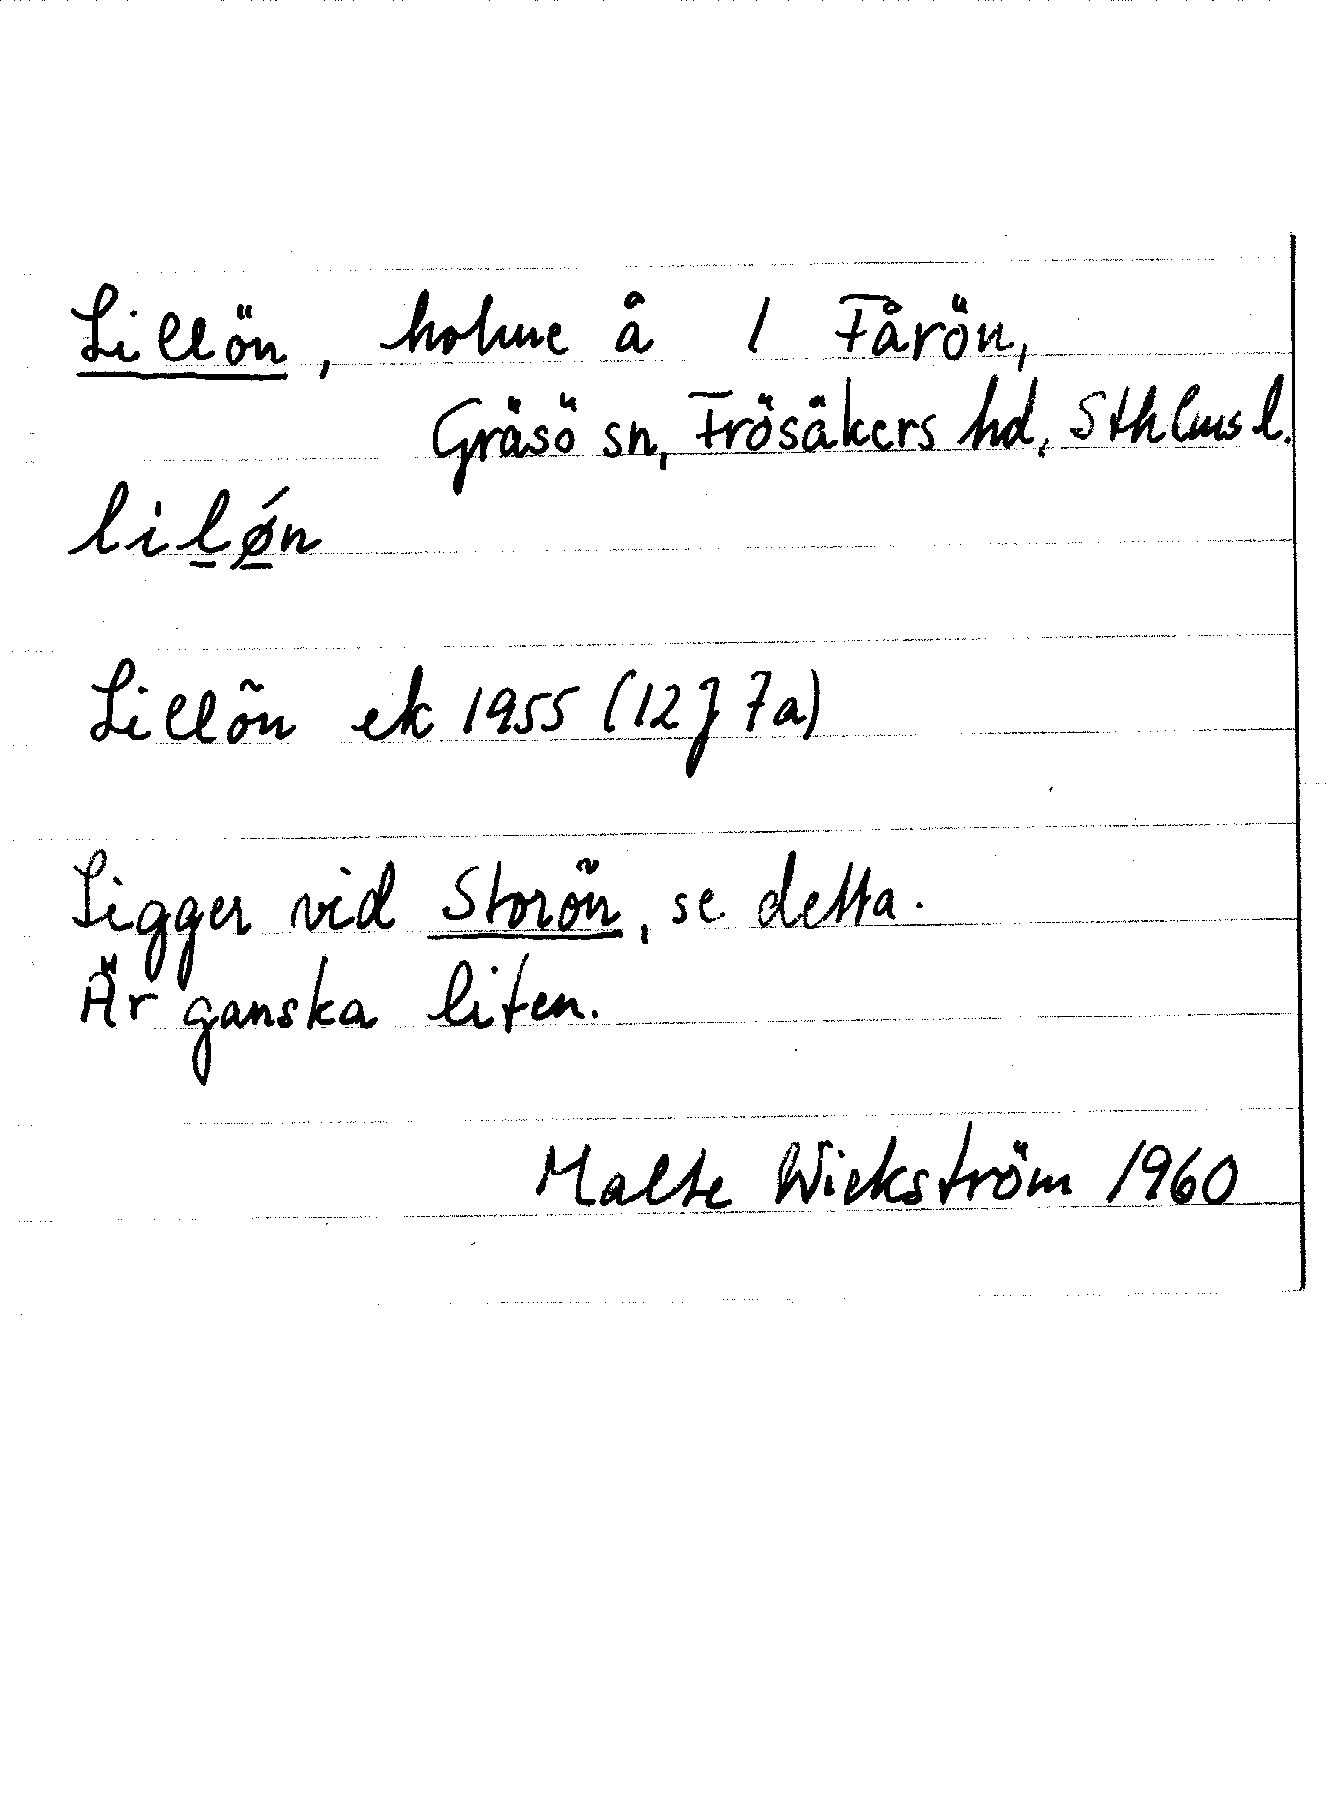 Lillön, holme å 1 Fårön,
Gräsö sn, Frösåkers hd, Sthlms l.
lil̲ǿ̲n
Lillön ek 1955 (12J 7a)
Ligger vid Storön, se detta.
Är ganska liten.
Malte Wickström 1960